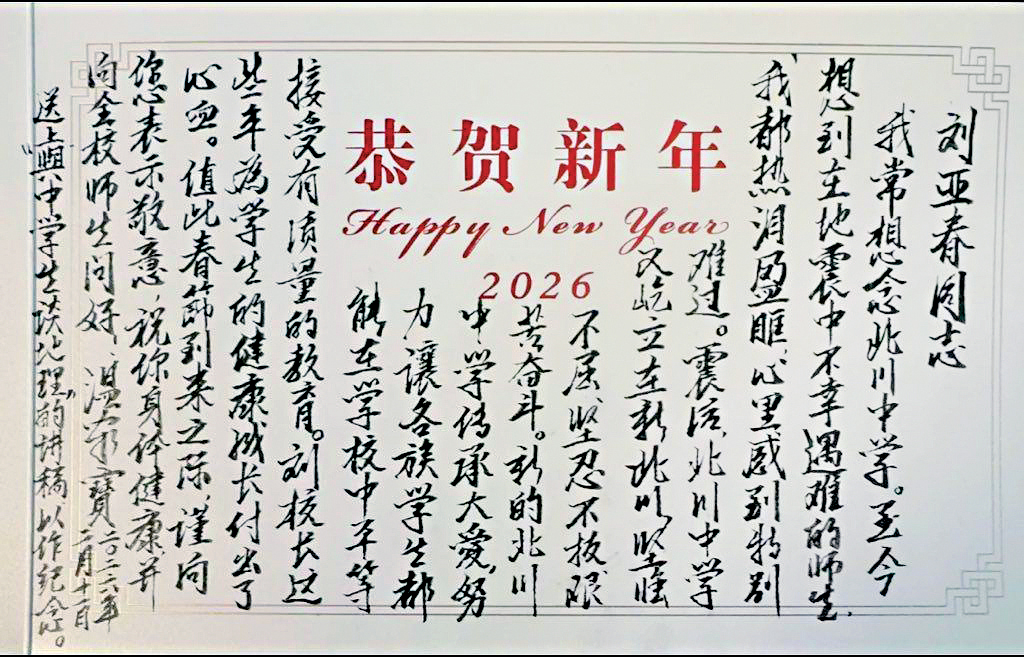 恭贺新年
Happy New Year
2026
刘亚春同志
我常想念北川中学。至今
想到在地震中不幸遇难的师生,
我都热泪盈眶,心里感到特别
难过。震后,北川中学
又屹立在新北川,坚强
不屈,坚忍不拔,艰
苦奋斗。新的北川
中学传承大爱,努
力讓各族学生都
能在学校中平等
接受有质量的教育。刘校长这
些年為学生的健康成长付出了
心血。值此春節到来之际,谨向
您表示敬意,祝你身体健康并
向全校师生问好,温家寳
二〇二六年
二月十一日
送上“與中学生谈地理”的讲稿以作纪念。